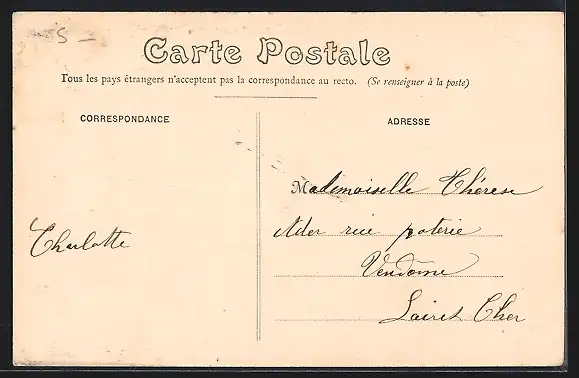 5 -
Carte Postale
Tous les pays étrangers n'acceptent pas la correspondance au recto. (Se renseigner à la poste)
CORRESPONDANCE
ADRESSE
Mademoiselle Thérèse
Ader rue poterie
Charlotte
Vendôme
Loiret Cher